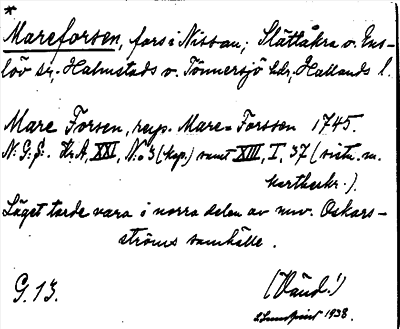 *
Mareforsen, fors i Nissan; Slättåkra o. Ens-
löv sr, Halmstads o. Tönnersjö hdr, Hallands l.
Mare Forsen, resp. Mare-Forssen 1745.
N:G:F. Hr A, XXI, No 3 (kop.) samt XIII, I, 37 (vidtn. m.
kartbeskr.).
Läget torde vara i norra delen av nuv. Oskars-
ströms samhälle.
G. 13.
(Vänd!)
1938.